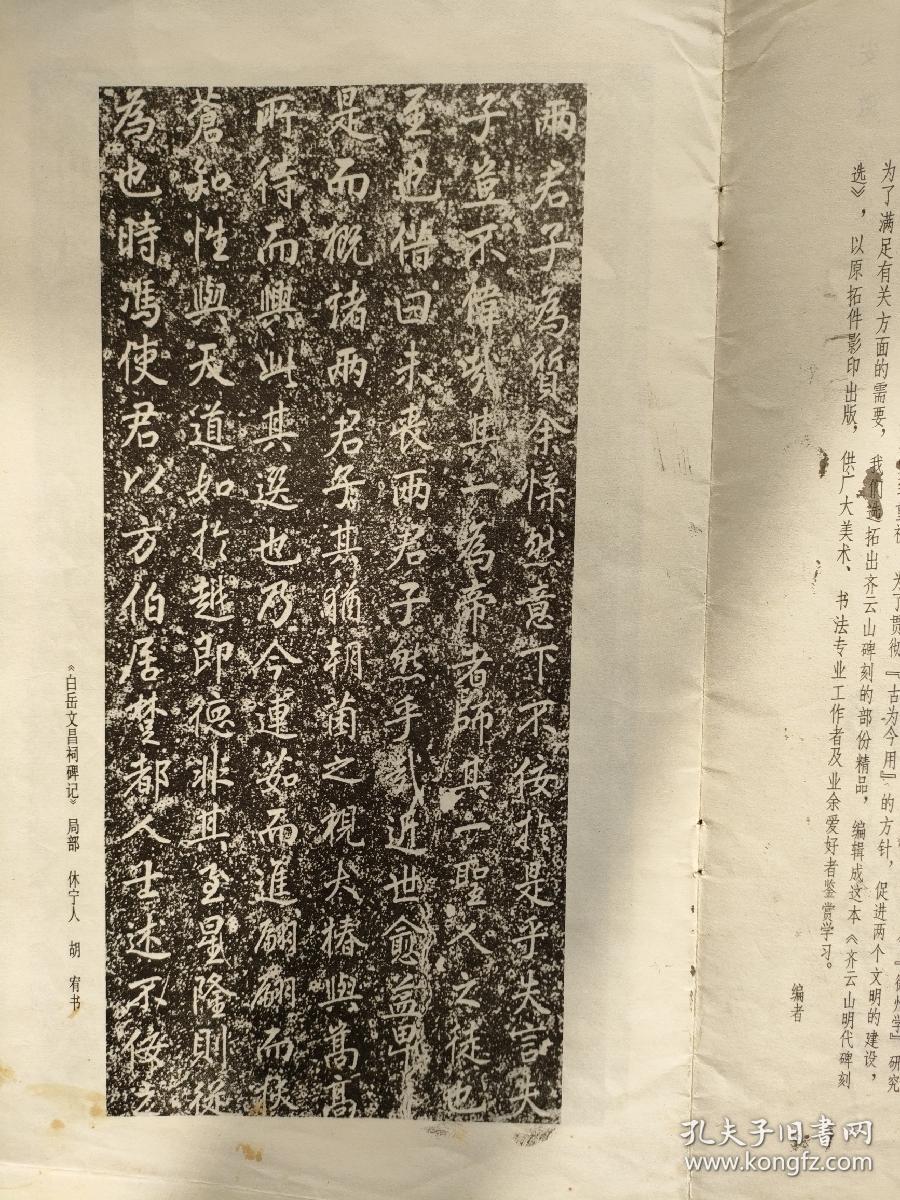 为了贯彻『古为今用』的方针，促进两个文明的建设，
为了满足有关方面的需要，我们选拓出齐云山碑刻的部份精品，编辑成这本《齐云山明代碑刻
选》，以原拓件影印出版，供广大美术、书法专业工作者及业余爱好者鉴赏学习。
编者
兩君子為質余悚然意下不佞於是乎失言失
子豈不偉哉其一為帝者師其一聖人之徒也
至也借曰未喪兩君子然乎哉近世愈益卑
是而概諸兩君子其猶朝菌之視大椿與嵩高
所待而興此其選也乃今連茹而進翩翩而
蒼知性與天道如於越即德非其至星隆則從
為也時馮使君以方伯居楚都人士述不佞
《白岳文昌祠碑记》局部 休宁人 胡宥书
孔夫子旧书网
www.kongfz.com